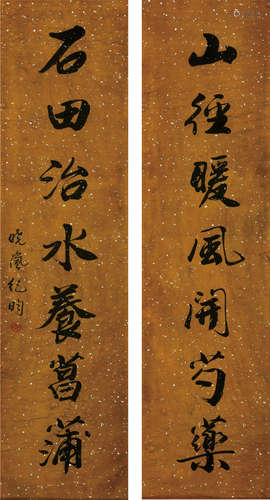 山徑暖風開芍藥
石田治水養菖蒲
曉嵐紀昀